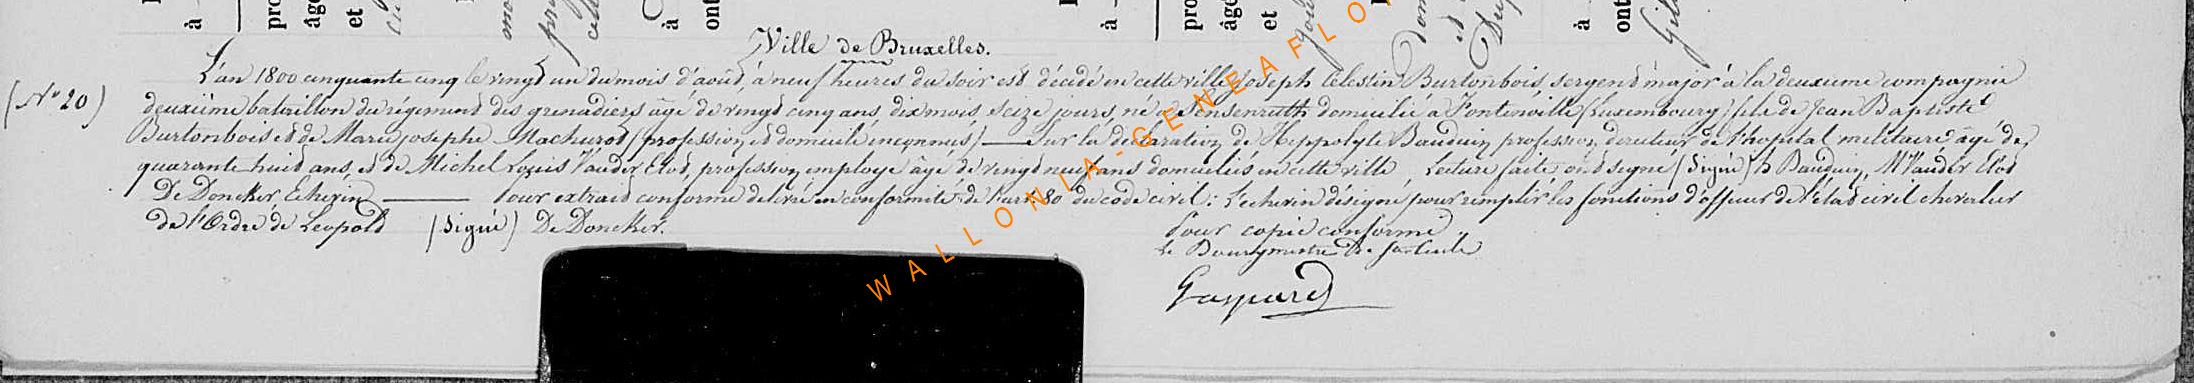 Ville de Bruxelles.
L'an 1800 cinquante cinq le vingt un du mois d'août, à neuf heures du soir est décédé en cette ville Joseph Célestin Burtonbois, sergent major à la deuxième compagnie
(N° 20) deuxième bataillon du régiment des grenadiers âgé de vingt cinq ans, dix mois, seize jours, né à Sensenruth domicilié à Fontenoille (Luxembourg) fils de Jean Baptiste
Burtonbois et de Marie josephe Machurot (profession et domicile inconnus) — Sur la déclaration de Hippolyte Bauduin profession directeur de l'hopital militaire âgé de
quarante huit ans, et de Michel Louis Vander Elst, profession employé âgé de vingt neuf ans domiciliés en cette ville, Lecture faite ont signé (signé) h Bauduin, M Vander Elst
De Doncker, Echevin — Pour extrait conforme délivré en conformité de l'art. 80 du code civil: L'echevin désigné pour remplir les fonctions d'officier de l'état civil chevalier
de l'Ordre de Leopold (signé) De Doncker.
Pour copie conforme
Le Bourgmestre De
Gaspard
WALLONIA-GENEAFLO
à
pro
âgé
et
à
ont
à
pro
âgé
et
à
ont